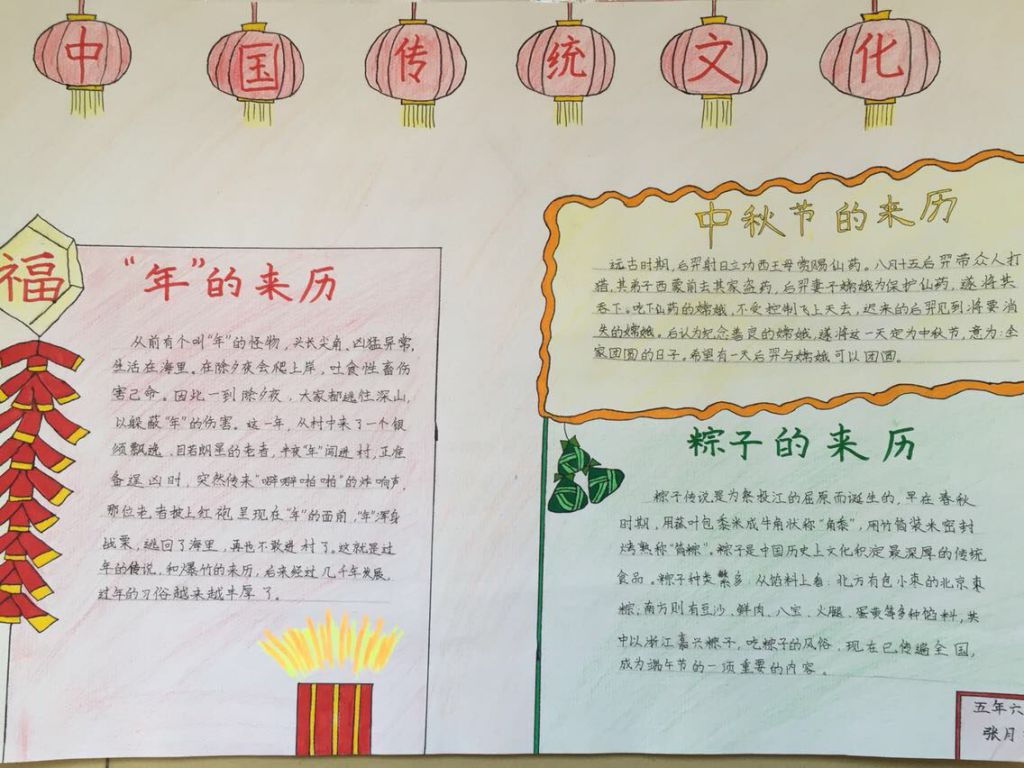 中国传统文化
福
“年”的来历
从前有个叫“年”的怪物,头长尖角、凶猛异常,
生活在海里。在除夕夜会爬上岸,吐食牲畜伤
害己命。因此一到除夕夜,大家都逃往深山,
以躲蔽“年”的伤害。这一年,从村中来了一个银
须飘逸、目若朗星的老者,半夜“年”闯进村,正准
备逞凶时,突然传来“噼噼啪啪”的炸响声,
那位老者披上红袍呈现在“年”的面前,“年”浑身
战栗,逃回了海里,再也不敢进村了。这就是过
年的传说,和爆竹的来历,后来经过几千年发展,
过年的习俗越来越丰厚了。
中秋节的来历
远古时期,后羿射日立功西王母赏赐仙药。八月十五后羿带众人打
猎,其弟子西蒙前去其家盗药,后羿妻子嫦娥为保护仙药,遂将其
吞下。吃下仙药的嫦娥,不受控制飞上天去,迟来的后羿见到将要消
失的嫦娥。后认为纪念善良的嫦娥,遂将这一天定为中秋节,意为:全
家团圆的日子。希望有一天后羿与嫦娥可以团圆。
粽子的来历
粽子传说是为祭投江的屈原而诞生的,早在春秋
时期,用菰叶包黍米成牛角状称“角黍”,用竹筒装米密封
烤熟称“筒粽”。粽子是中国历史上文化积淀最深厚的传统
食品。粽子种类繁多,从馅料上看:北方有包小枣的北京枣
粽;南方则有豆沙、鲜肉、八宝、火腿、蛋黄等多种馅料,其
中以浙江嘉兴粽子,吃粽子的风俗,现在已传遍全国,
成为端午节的一项重要的内容。
五年六
张月